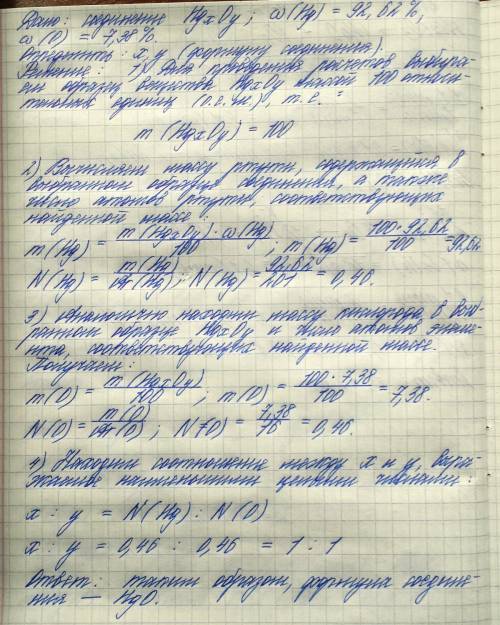 Дано: соединение HgxOy; ω(Hg) = 92,62 %,
ω(O) = 7,38 %.
Определить: x, y (формулу соединения).
Решение: 1) Для проведения расчетов выбира-
ем образец вещества HgxOy массой 100 относи-
тельных единиц (о.е.м.), т.е.:
m(HgxOy) = 100
2) Вычисляем массу ртути, содержащейся в
выбранном образце соединения, а также
число атомов ртути, соответствующих
найденной массе:
m(Hg) = m(HgxOy) · ω(Hg) / 100 ; m(Hg) = 100 · 92,62 / 100 = 92,62
N(Hg) = m(Hg) / Ar(Hg) ; N(Hg) = 92,62 / 201 = 0,46.
3) Аналогично находим массу кислорода в выб-
ранном образце HgxOy и число атомов элеме-
нта, соответствующих найденной массе.
Получаем:
m(O) = m(HgxOy) / 100 ; m(O) = 100 · 7,38 / 100 = 7,38.
N(O) = m(O) / Ar(O) ; N(O) = 7,38 / 16 = 0,46.
4) Находим соотношение между x и y, выра-
женное наименьшими целыми числами:
x : y = N(Hg) : N(O)
x : y = 0,46 : 0,46 = 1 : 1
Ответ: таким образом, формула соедине-
ния — HgO.